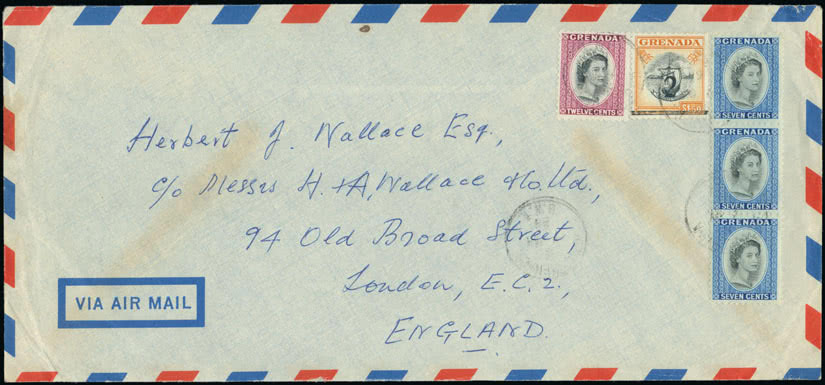 GRENADA
TWELVE CENTS
GRENADA
$1.50
GRENADA
SEVEN CENTS
GRENADA
SEVEN CENTS
GRENADA
SEVEN CENTS
Herbert J. Wallace Esq.,
c/o Messrs H. & A, Wallace Ltd.,
94 Old Broad Street,
London, E.C.2.,
ENGLAND.
VIA AIR MAIL